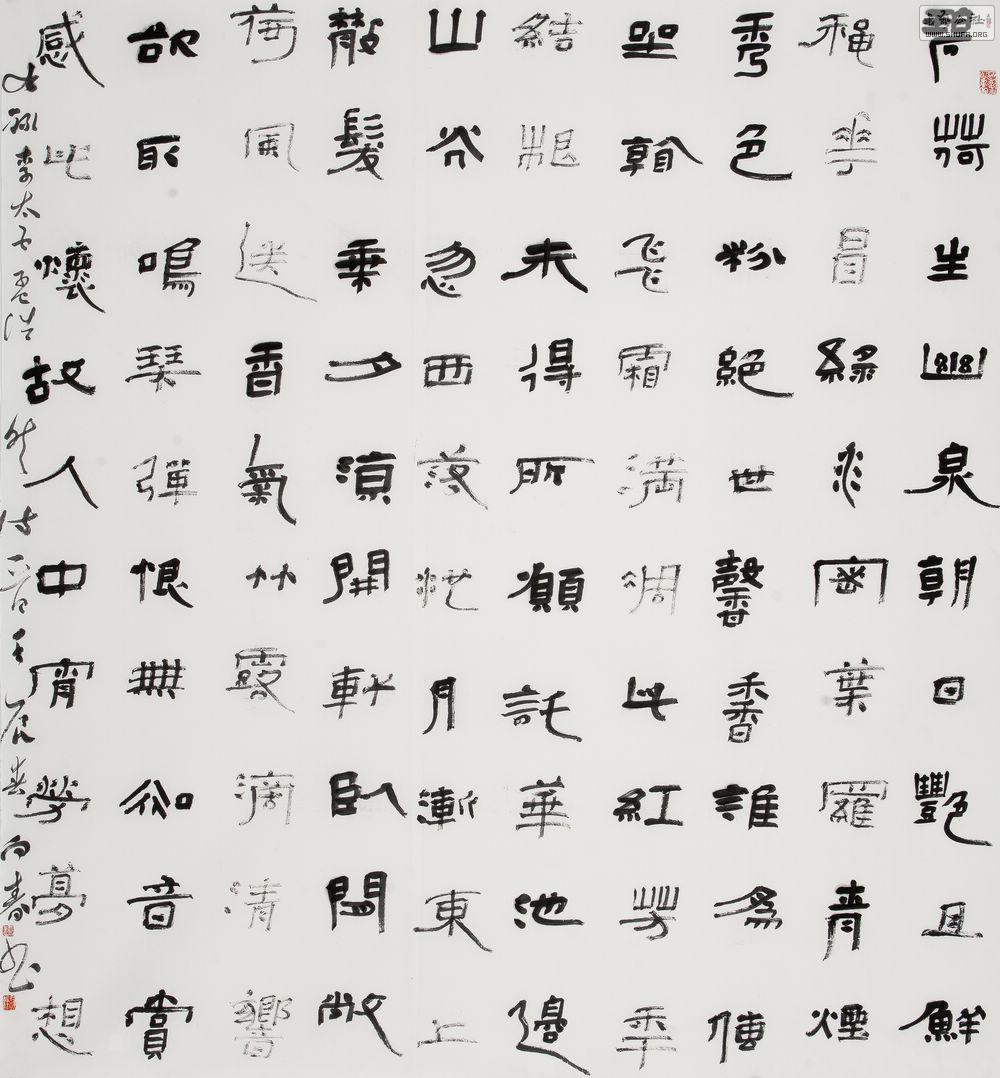 碧荷生幽泉朝日艷且鮮
秋華冒綠水密葉羅青煙
秀色粉絕世馨香誰為傳
坐看飛霜滿凋此紅芳年
結根未得所願託華池邊
山谷忽西落池月漸東上
散髮乘夕涼開軒臥閒敞
荷風送香氣竹露滴清響
欲取鳴琴彈恨無知音賞
感此懷故人中宵勞夢想
右録李太白孟浩然詩二首壬辰春向書
WWW.SHUFA.ORG